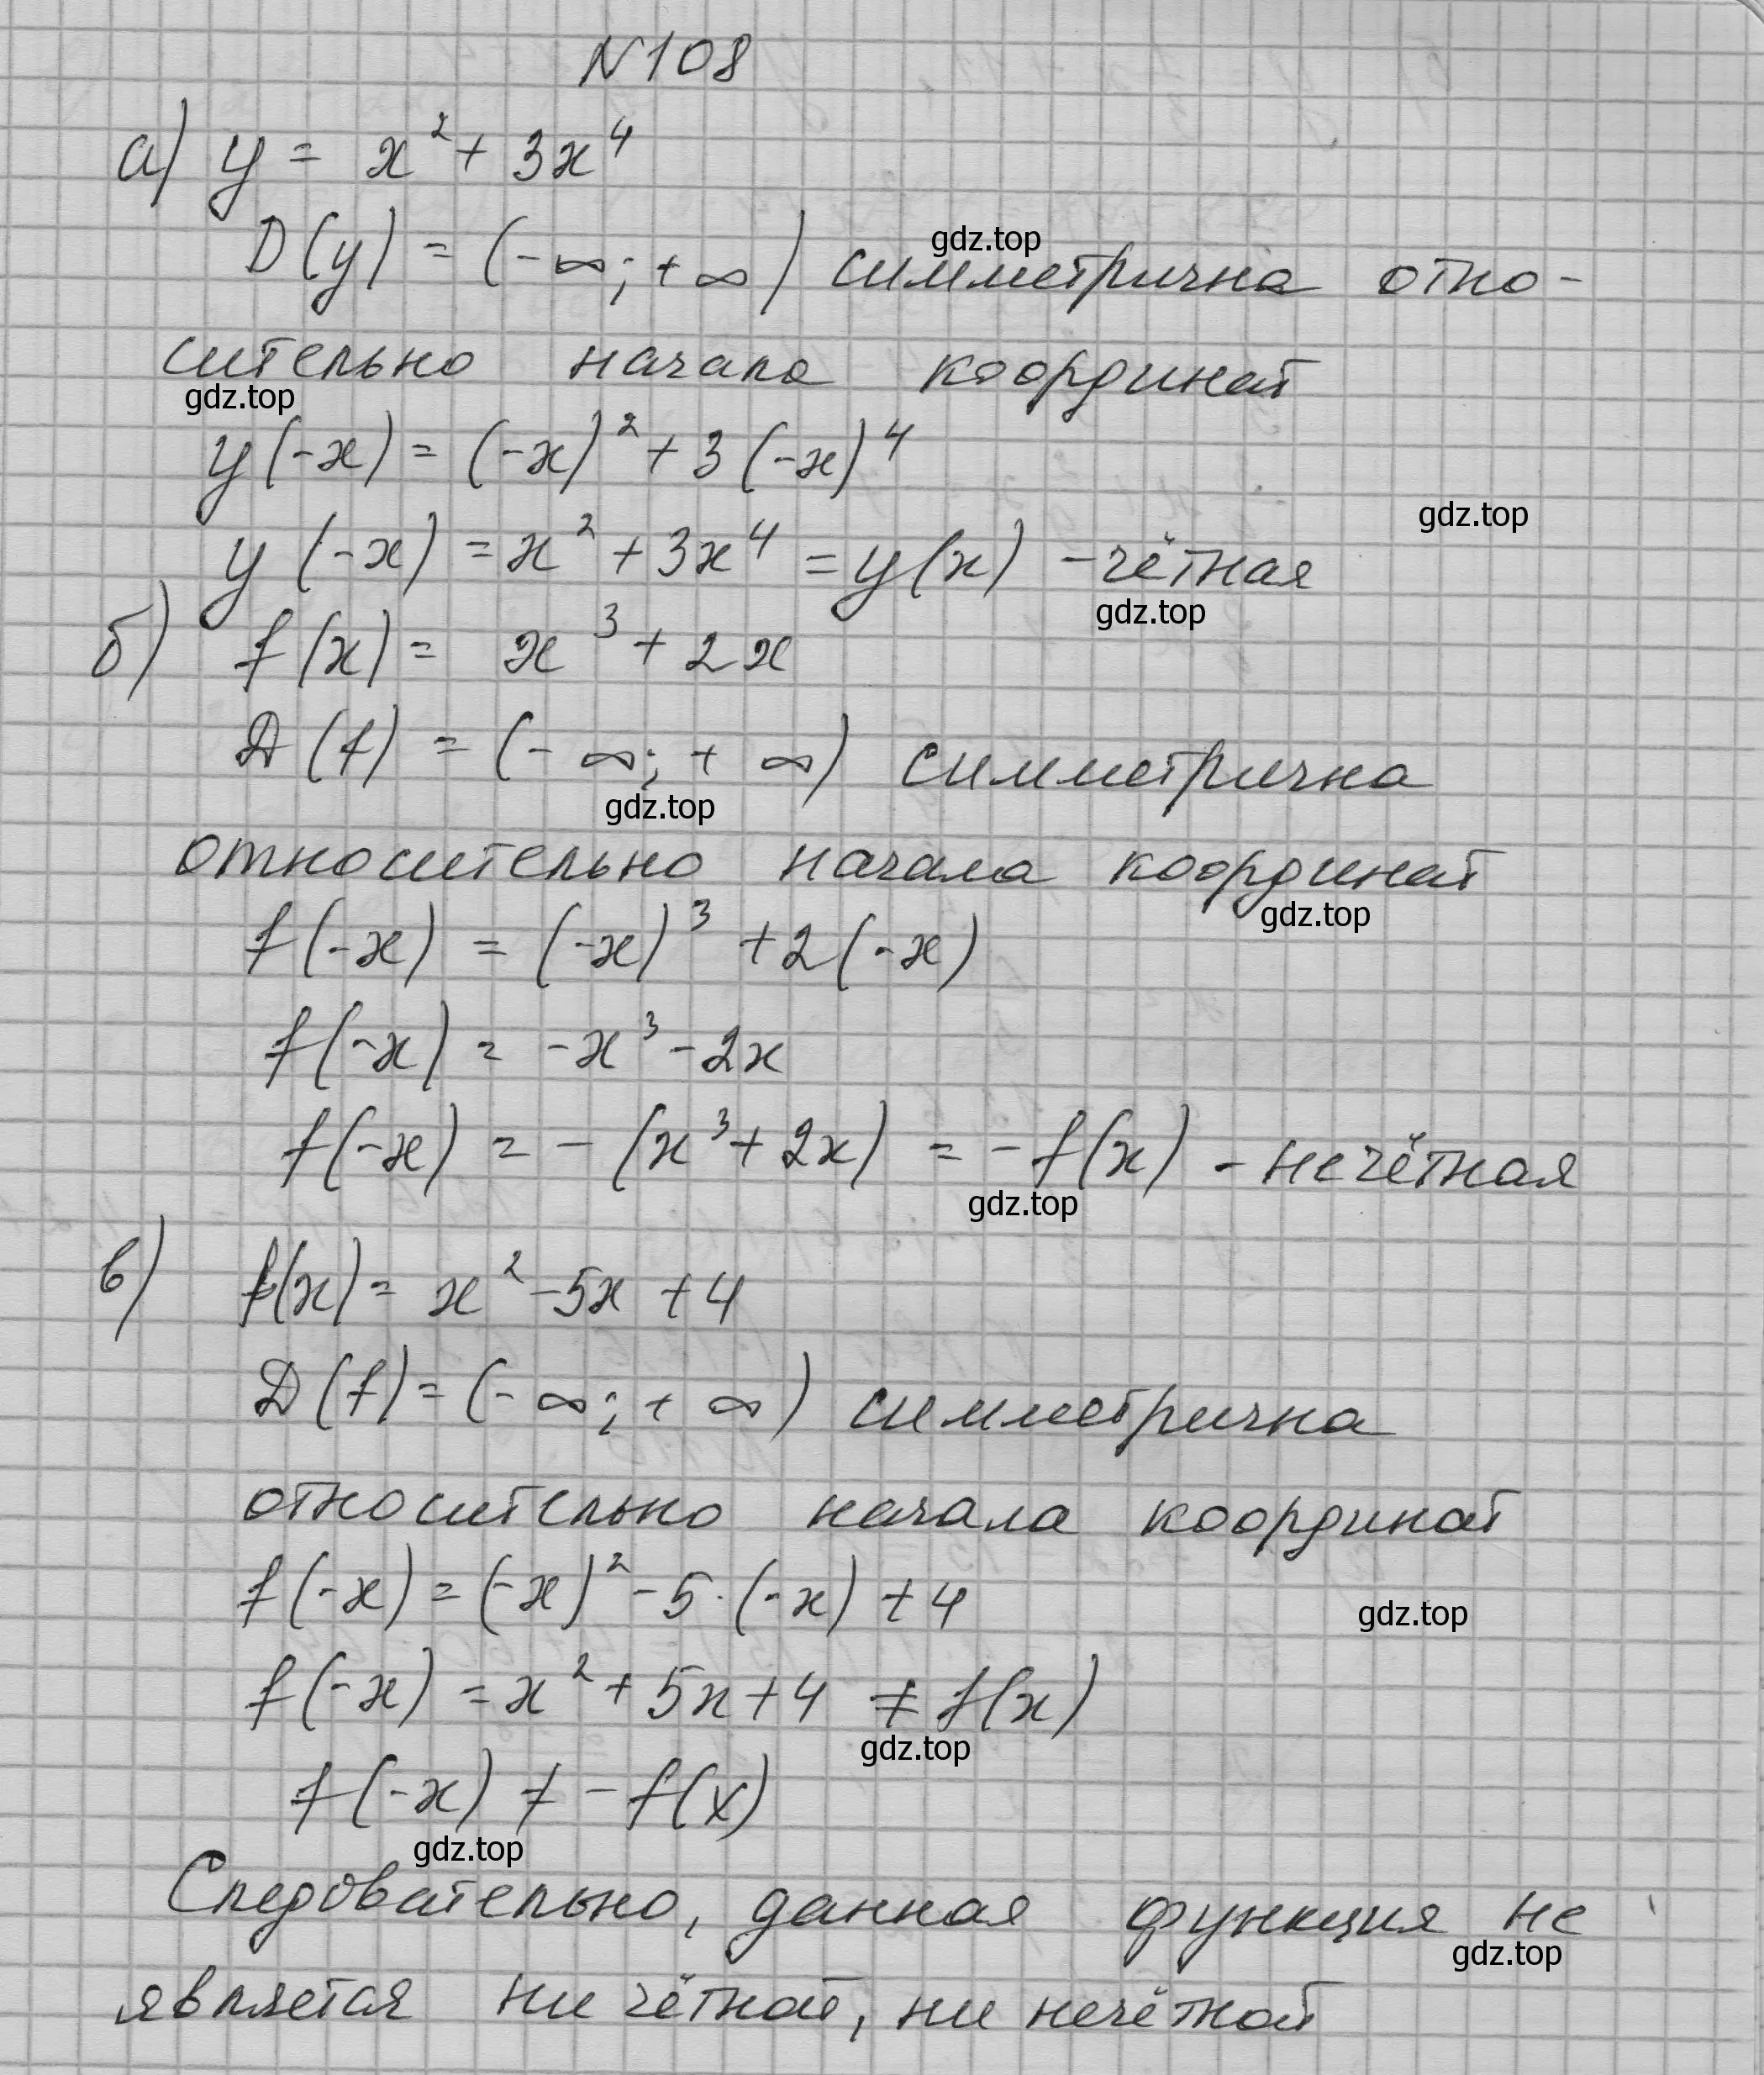 N108
а) y = x² + 3x⁴
D(y) = (-∞; +∞) симметрична отно-
gdz.top
сительно начала координат
gdz.top
y(-x) = (-x)² + 3(-x)⁴
gdz.top
y(-x) = x² + 3x⁴ = y(x) - чётная
gdz.top
б) f(x) = x³ + 2x
D(f) = (-∞; +∞) симметрична
gdz.top
относительно начала координат
gdz.top
f(-x) = (-x)³ + 2(-x)
f(-x) = -x³ - 2x
f(-x) = -(x³ + 2x) = -f(x) - нечётная
gdz.top
в) f(x) = x² - 5x + 4
D(f) = (-∞; +∞) симметрична
относительно начала координат
f(-x) = (-x)² - 5·(-x) + 4
gdz.top
f(-x) = x² + 5x + 4 ≠ f(x)
gdz.top
f(-x) ≠ -f(x)
gdz.top
Следовательно, данная функция не
gdz.top
является ни чётной, ни нечётной